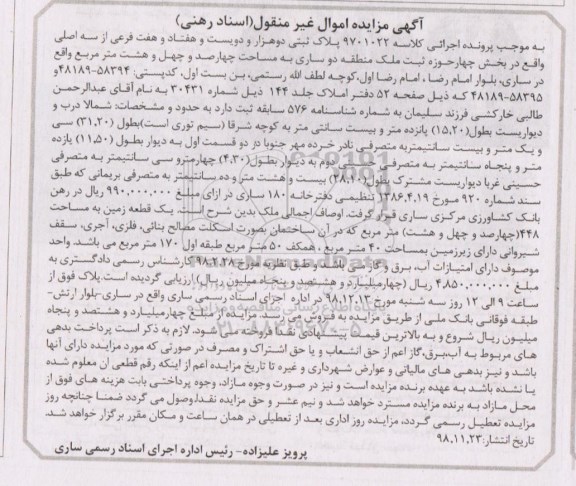 آگهی مزایده اموال غیر منقول(اسناد رهنی)
به موجب پرونده اجرائی کلاسه ۹۷۰۱۰۲۲ پلاک ثبتی دوهزار و دویست و هفتاد و هفت فرعی از سه اصلی
واقع در بخش چهارحوزه ثبت ملک منطقه دو ساری به مساحت چهارصد و چهل و هشت متر مربع واقع
در ساری، بلوار امام رضا ، امام رضا اول،کوچه لطف الله رستمی، بن بست اول، کدپستی: ۵۸۳۹۴-۴۸۱۸۹و
۵۸۳۹۵-۴۸۱۸۹ که ذیل صفحه ۵۲ دفتر املاک جلد ۱۴۴ ذیل شماره ۳۰۴۳۱ به نام آقای عبدالرحمن
طالبی خارکشی فرزند سلیمان به شماره شناسنامه ۵۷۶ سابقه ثبت دارد به حدود و مشخصات: شمالا درب و
دیواریست بطول(۱۵،۲۰) پانزده متر و بیست سانتی متر به کوچه شرقا (سیم توری است)بطول (۳۱،۲۰) سی
و یک متر و بیست سانتیمتربه متصرفی نادر خرده مهر جنوبا در دو قسمت اول به دیوار بطول (۱۱،۵۰) یازده
متر و پنجاه سانتیمتر به متصرفی حیدر دوم به دیوار بطول(۴،۳۰) چهارمترو سی سانتیمتر به متصرفی
حسینی غربا دیواریست مشترک بطول(۲۸،۱۰) بیست و هشت متر و ده سانتیمتر به متصرفی بریمانی که طبق
سند شماره ۹۲۰ مورخ ۱۳۸۶،۴،۱۹ تنظیمی دفترخانه ۱۸۰ ساری در ازای مبلغ ۹۹۰،۰۰۰،۰۰۰ ریال در رهن
بانک کشاورزی مرکزی ساری قرار گرفت. اوصاف اجمالی ملک بدین شرح است، یک قطعه زمین به مساحت
۴۴۸(چهارصد و چهل و هشت) متر مربع که در آن ساختمان بصورت اسکلت مصالح بنائی، فلزی، آجری، سقف
شیروانی دارای زیرزمین بمساحت ۴۰ متر مربع ، همکف ۵۰ متر مربع طبقه اول ۱۷۰ متر مربع می باشد. واحد
موصوف دارای امتیازات آب، برق و گاز می باشد و طبق نظریه مورخ ۹۸،۲،۲۸ کارشناس رسمی دادگستری به
مبلغ ۴،۸۵۰،۰۰۰،۰۰۰ ریال (چهارمیلیارد و هشتصد و پنجاه میلیون ریال) ارزیابی گردیده است.پلاک فوق از
ساعت ۹ الی ۱۲ روز سه شنبه مورخ ۹۸،۱۲،۱۳ در اداره اجرای اسناد رسمی ساری واقع در ساری-بلوار ارتش-
طبقه فوقانی بانک ملی از طریق مزایده به فروش می رسد. مزایده از مبلغ چهارمیلیارد و هشتصد و پنجاه
میلیون ریال شروع و به بالاترین قیمت پیشنهادی نقدا فروخته می شود. لازم به ذکر است پرداخت بدهی
های مربوط به آب،برق،گاز اعم از حق انشعاب و یا حق اشتراک و مصرف در صورتی که مورد مزایده دارای آنها
باشد و نیز بدهی های مالیاتی و عوارض شهرداری و غیره تا تاریخ مزایده اعم از اینکه رقم قطعی ان معلوم شده
یا نشده باشد به عهده برنده مزایده است و نیز در صورت وجوه مازاد، وجوه پرداختی بابت هزینه های فوق از
محل مازاد به برنده مزایده مسترد خواهد شد و نیم عشر و حق مزایده نقداوصول می گردد ضمنا چنانچه روز
مزایده تعطیل رسمی گردد، مزایده روز اداری بعد از تعطیلی در همان ساعت و مکان مقرر برگزار خواهد شد.
تاریخ انتشار:۹۸،۱۱،۲۳
پرویز علیزاده- رئیس اداره اجرای اسناد رسمی ساری